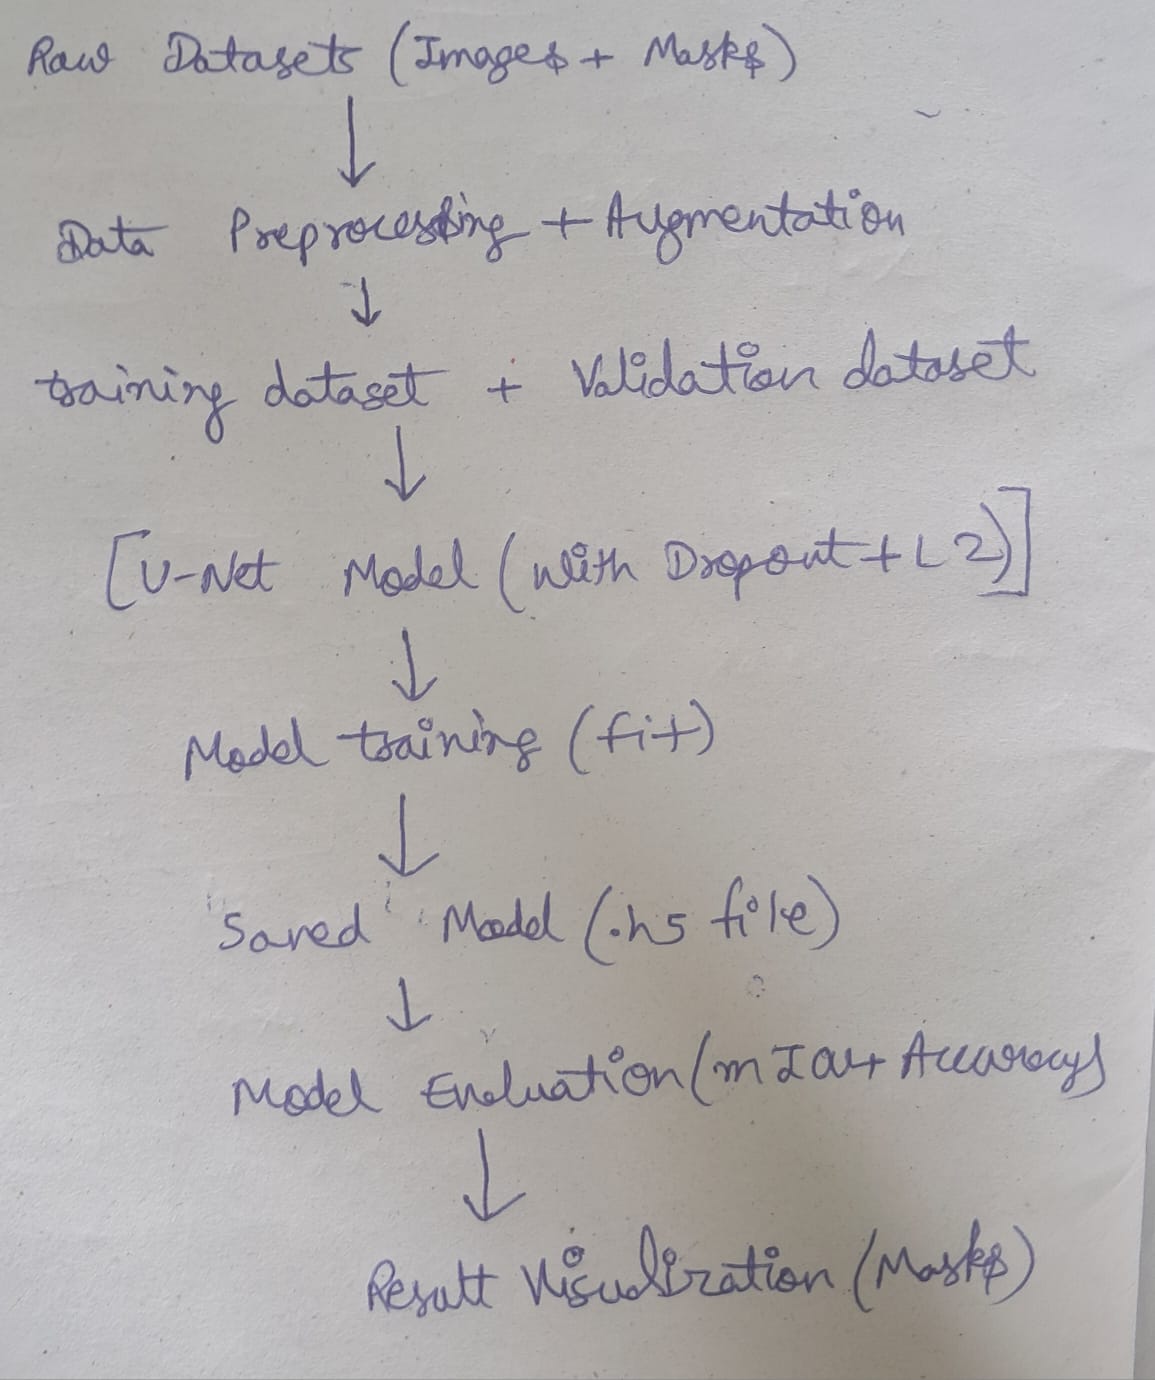 Raw Datasets (Images + Masks)
↓
Data Preprocessing + Augmentation
↓
training dataset + Validation dataset
↓
[U-Net Model (with Dropout + L2)]
↓
Model training (fit)
↓
Saved Model (.h5 file)
↓
Model Evaluation (mIOU + Accuracy)
↓
Result Visualization (Masks)